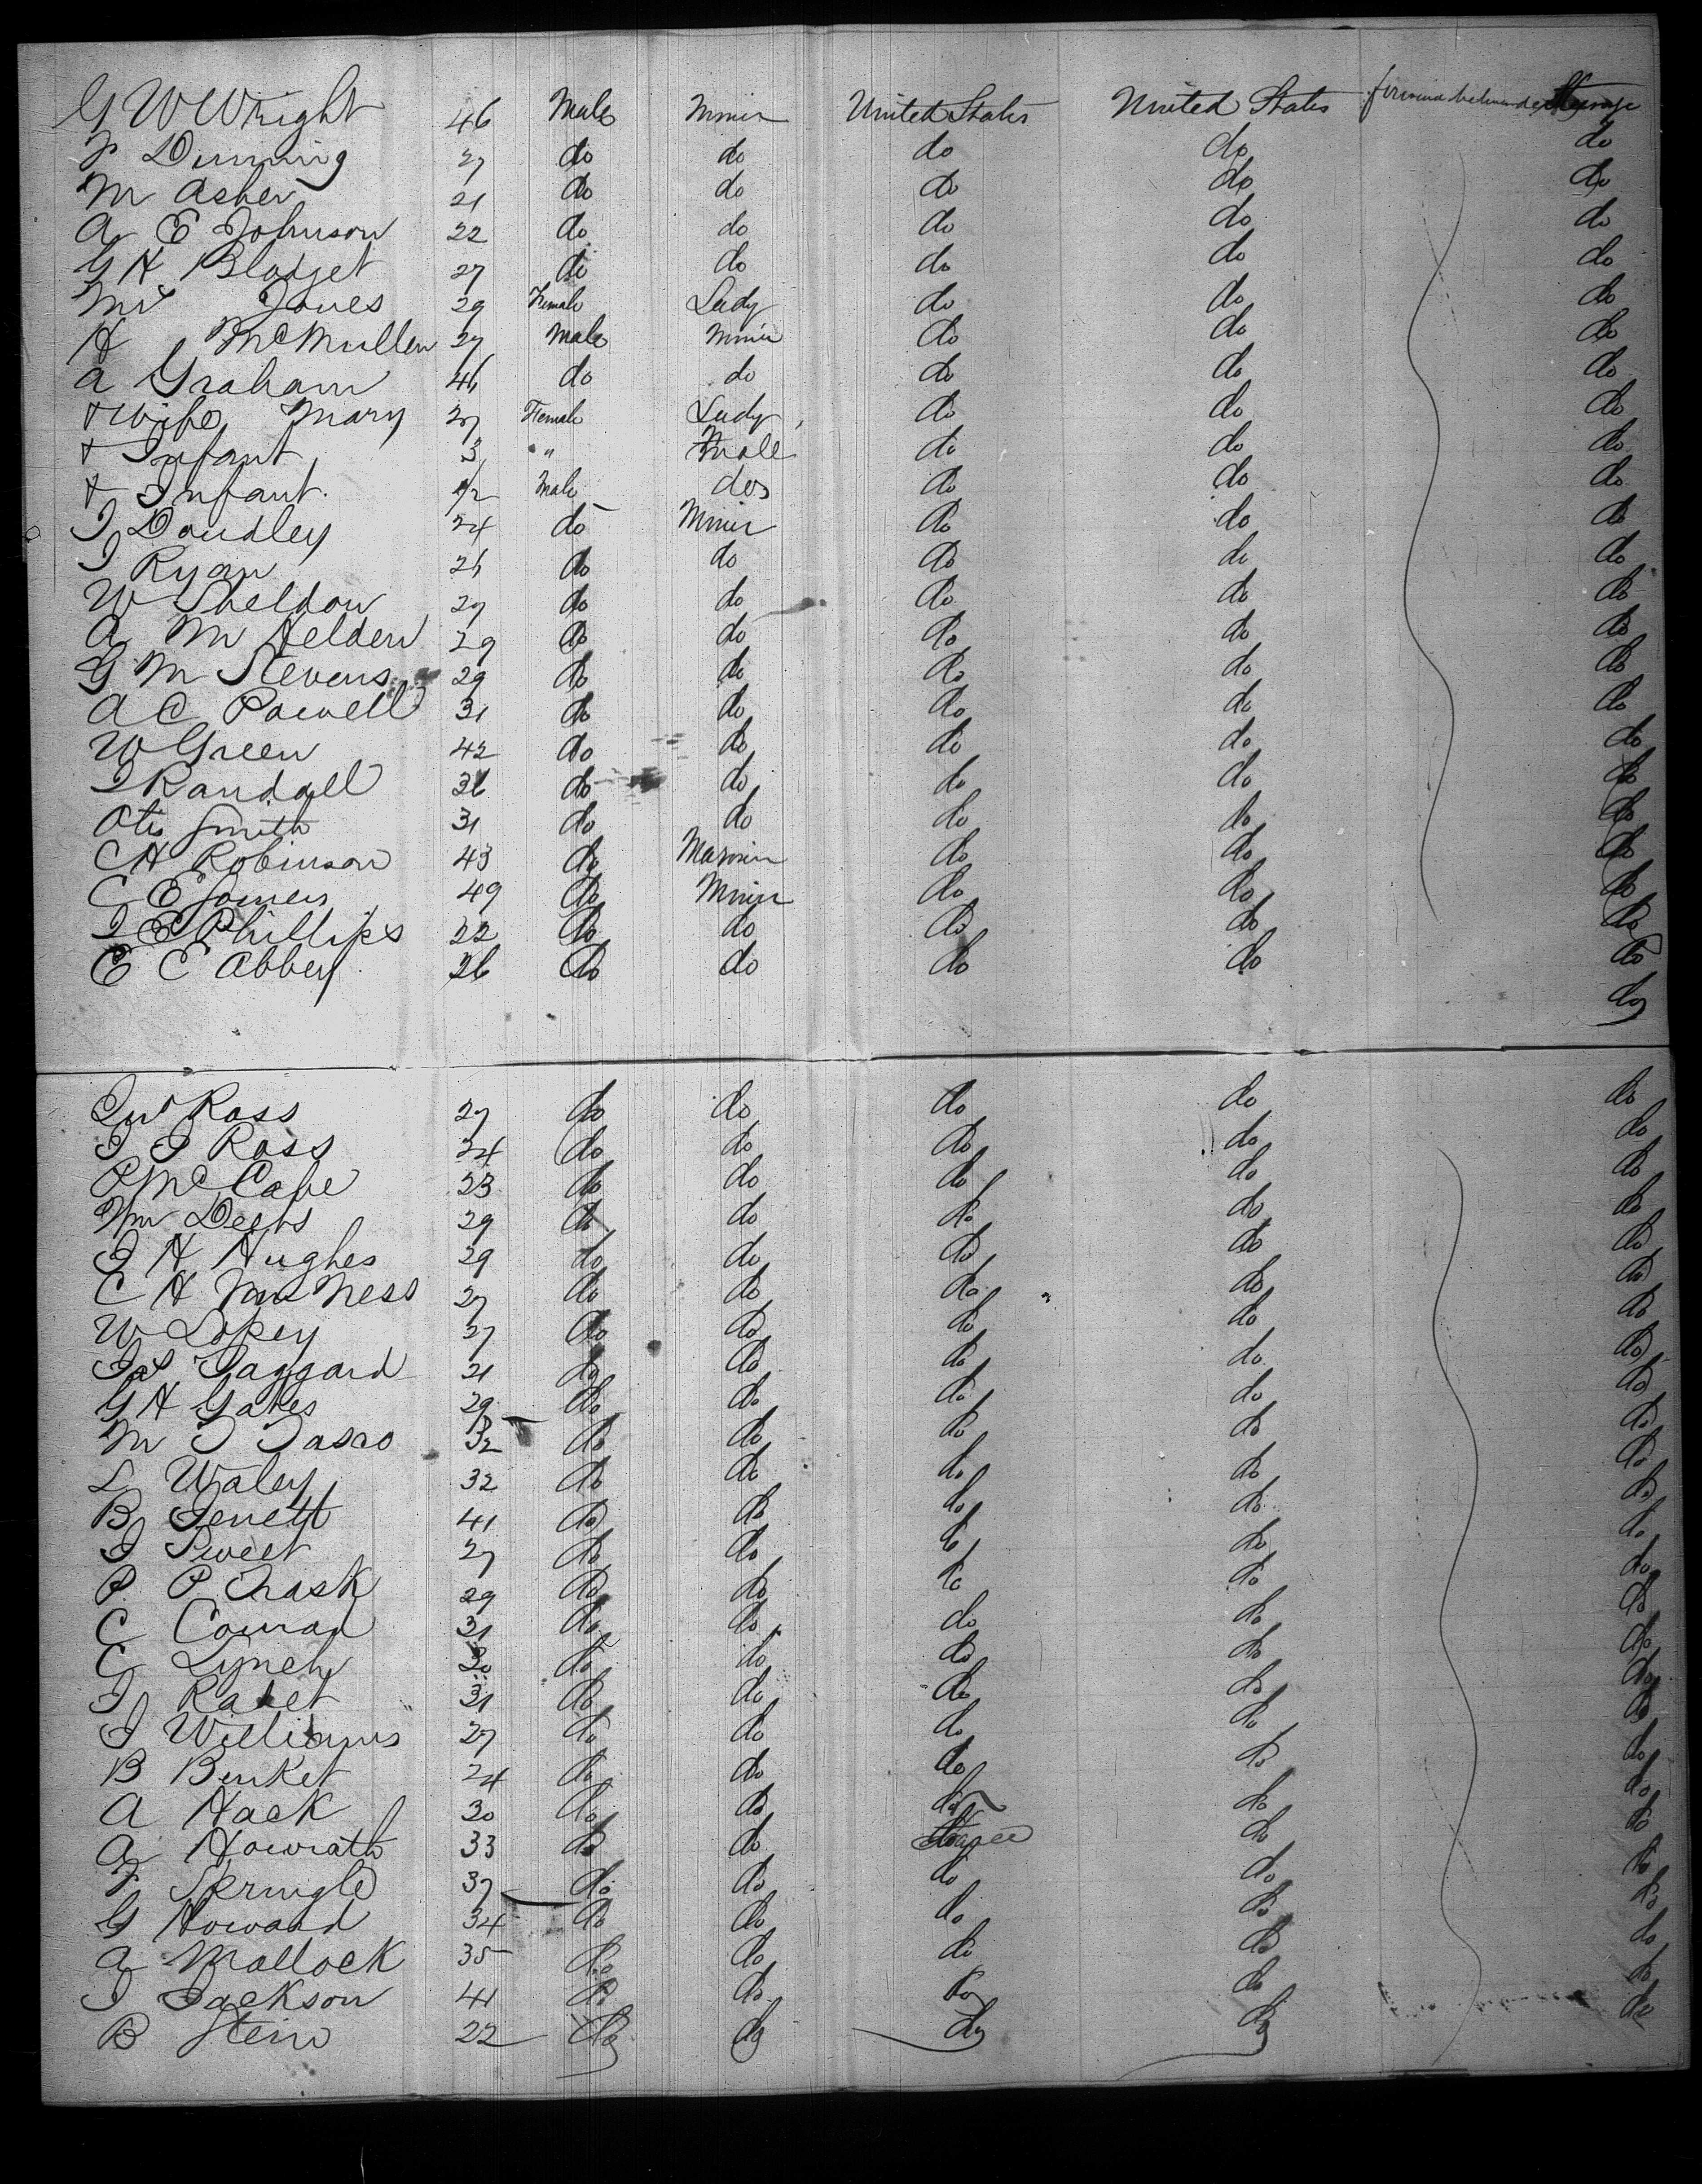 G W Wright 46 Male Miner United States United States Steerage
F Dunning 27 do do do do do
M Asher 21 do do do do do
A E Johnson 22 do do do do do
G H Blodget 27 do do do do do
Mrs Jones 29 Female Lady do do do
H McMullen 27 Male Miner do do do
A Graham 46 do do do do do
& Wife Mary 27 Female Lady do do do
& Infant 3 " Male do do do
& Infant 1/2 Male do do do do
J Doudley 24 do Miner do do do
J Ryan 26 do do do do do
W Sheldon 27 do do do do do
A M Helden 29 do do do do do
G M Stevens 29 do do do do do
A C Powell 31 do do do do do
W Green 42 do do do do do
J Randall 36 do do do do do
Otis Smith 31 do do do do do
C H Robinson 43 do do do do
C E Somers 49 do Miner do do do
J E Phillips 22 do do do do do
E C Abbey 26 do do do do do
do
Ross 27 do do do do do
J J Ross 24 do do do do do
P McCabe 23 do do do do do
Wm Deets 29 do do do do do
J H Hughes 29 do do do do do
C H Ness 27 do do do do do
W Lopey 27 do do do do do
Jas Taggard 21 do do do do do
G H Gates 29 do do do do do
M T Tasao 32 do do do do do
L Waley 32 do do do do do
B Jenett 41 do do do do do
J Sweet 27 do do do do do
P P Trask 29 do do do do do
C Conrad 31 do do do do do
C Lynch 30 do do do do do
J 31 do do do do do
J Williams 27 do do do do do
B Benket 24 do do do do do
A Hack 30 do do do do do
A Howrath 33 do do do do
F Skringle 37 do do do do do
G Howard 34 do do do do do
A Mallock 35 do do do do do
J Jackson 41 do do do do do
B Stein 22 do do do do do